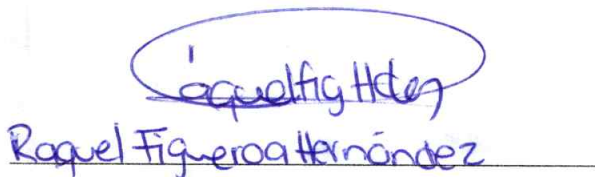 Raquelfig Hdez
Raquel Figueroa Hernández